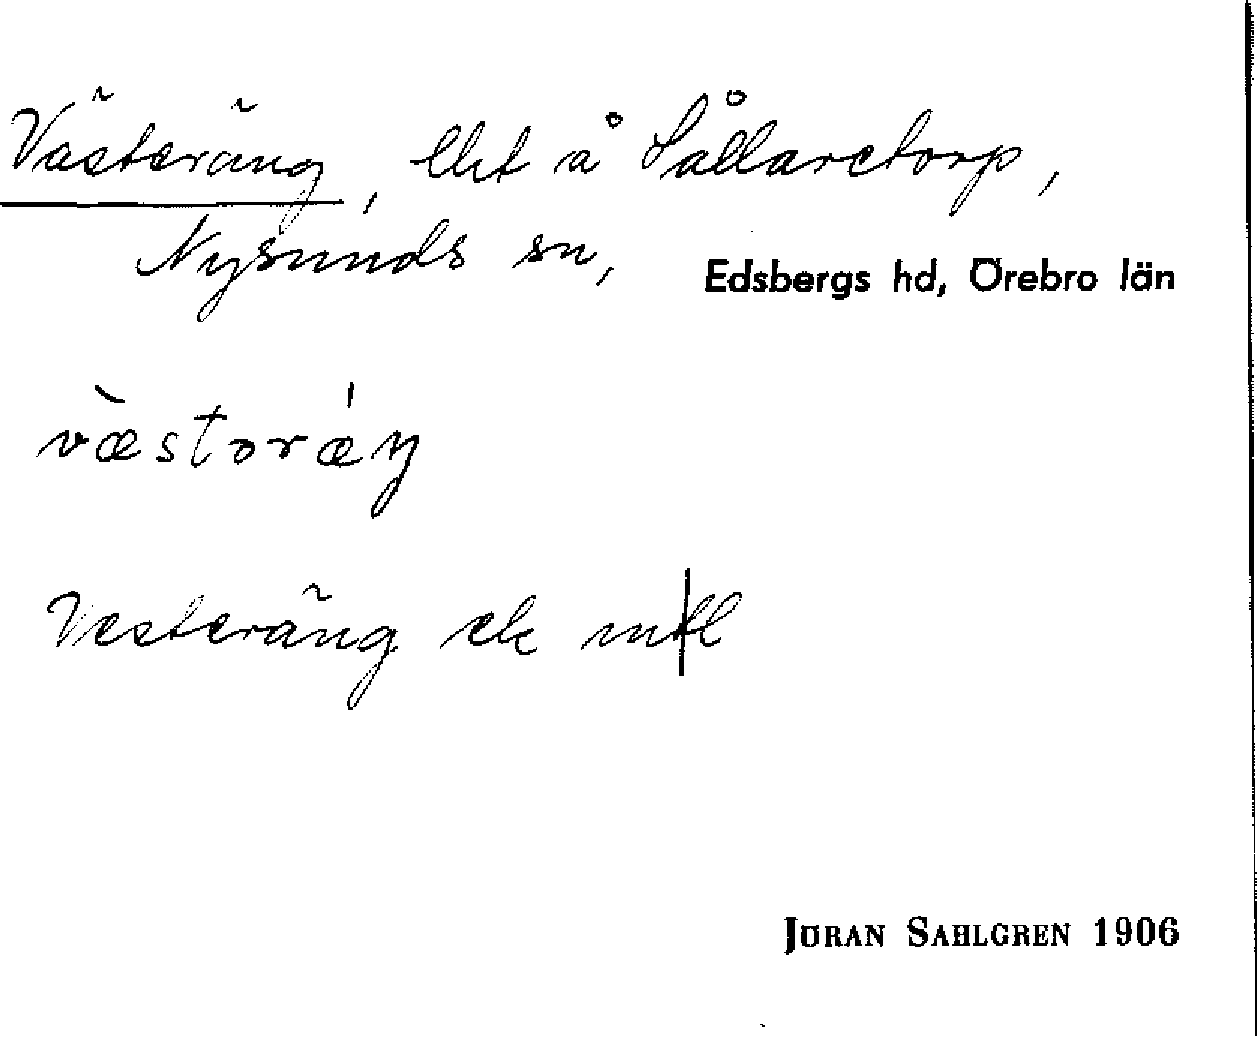 Västeräng, lht å Sållaretorp,
Nysunds sn, Edsbergs hd, Örebro län
væ̀storǽŋ
Vesteräng ek
JÖRAN SAHLGREN 1906